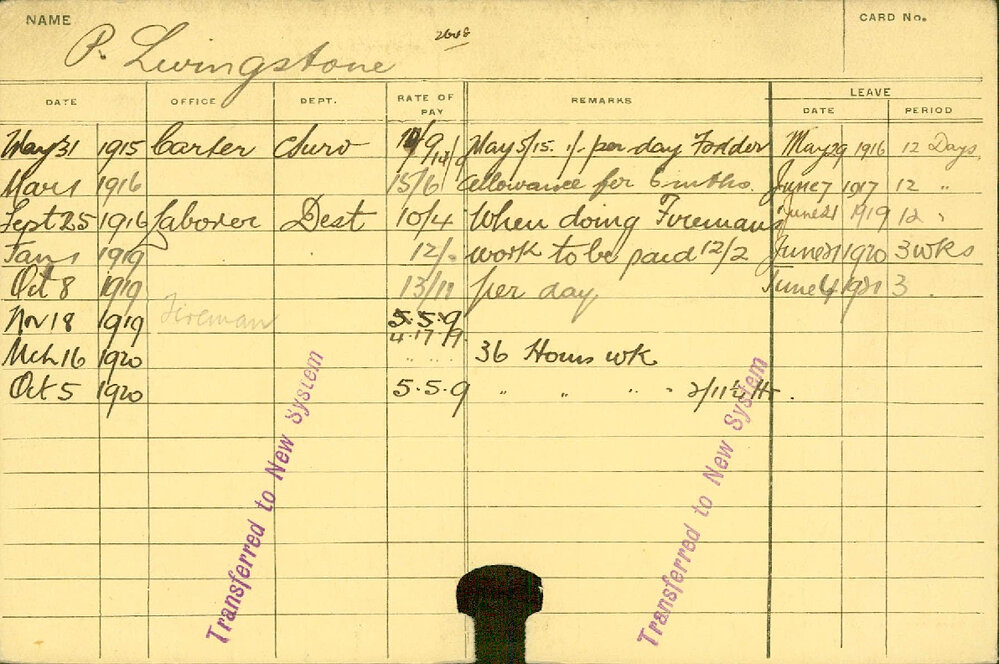 NAME
CARD No.
P. Livingstone
DATE OFFICE DEPT. RATE OF PAY REMARKS LEAVE
DATE PERIOD
May 31 1915 Carter 14/1 May 5/15. 1/- per day Fodder May 29 1916 12 Days
1916 15/6 allowance for 6 mths. June 7 1917 12 "
Sept 25 1916 laborer Dest 10/4 When doing Firemans June 21 1919 12 "
Jan 1919 12/- work to be paid 12/2 June 21 1920 3 wks
Oct 8 1919 13/11 per day June 4 1921 3
Nov 18 1919 Fireman 5.5.9
4.17.9
Mch 16 1920 " " " 36 Hours wk
Oct 5 1920 5.5.9 " " " "
Transferred to New System
Transferred to New System